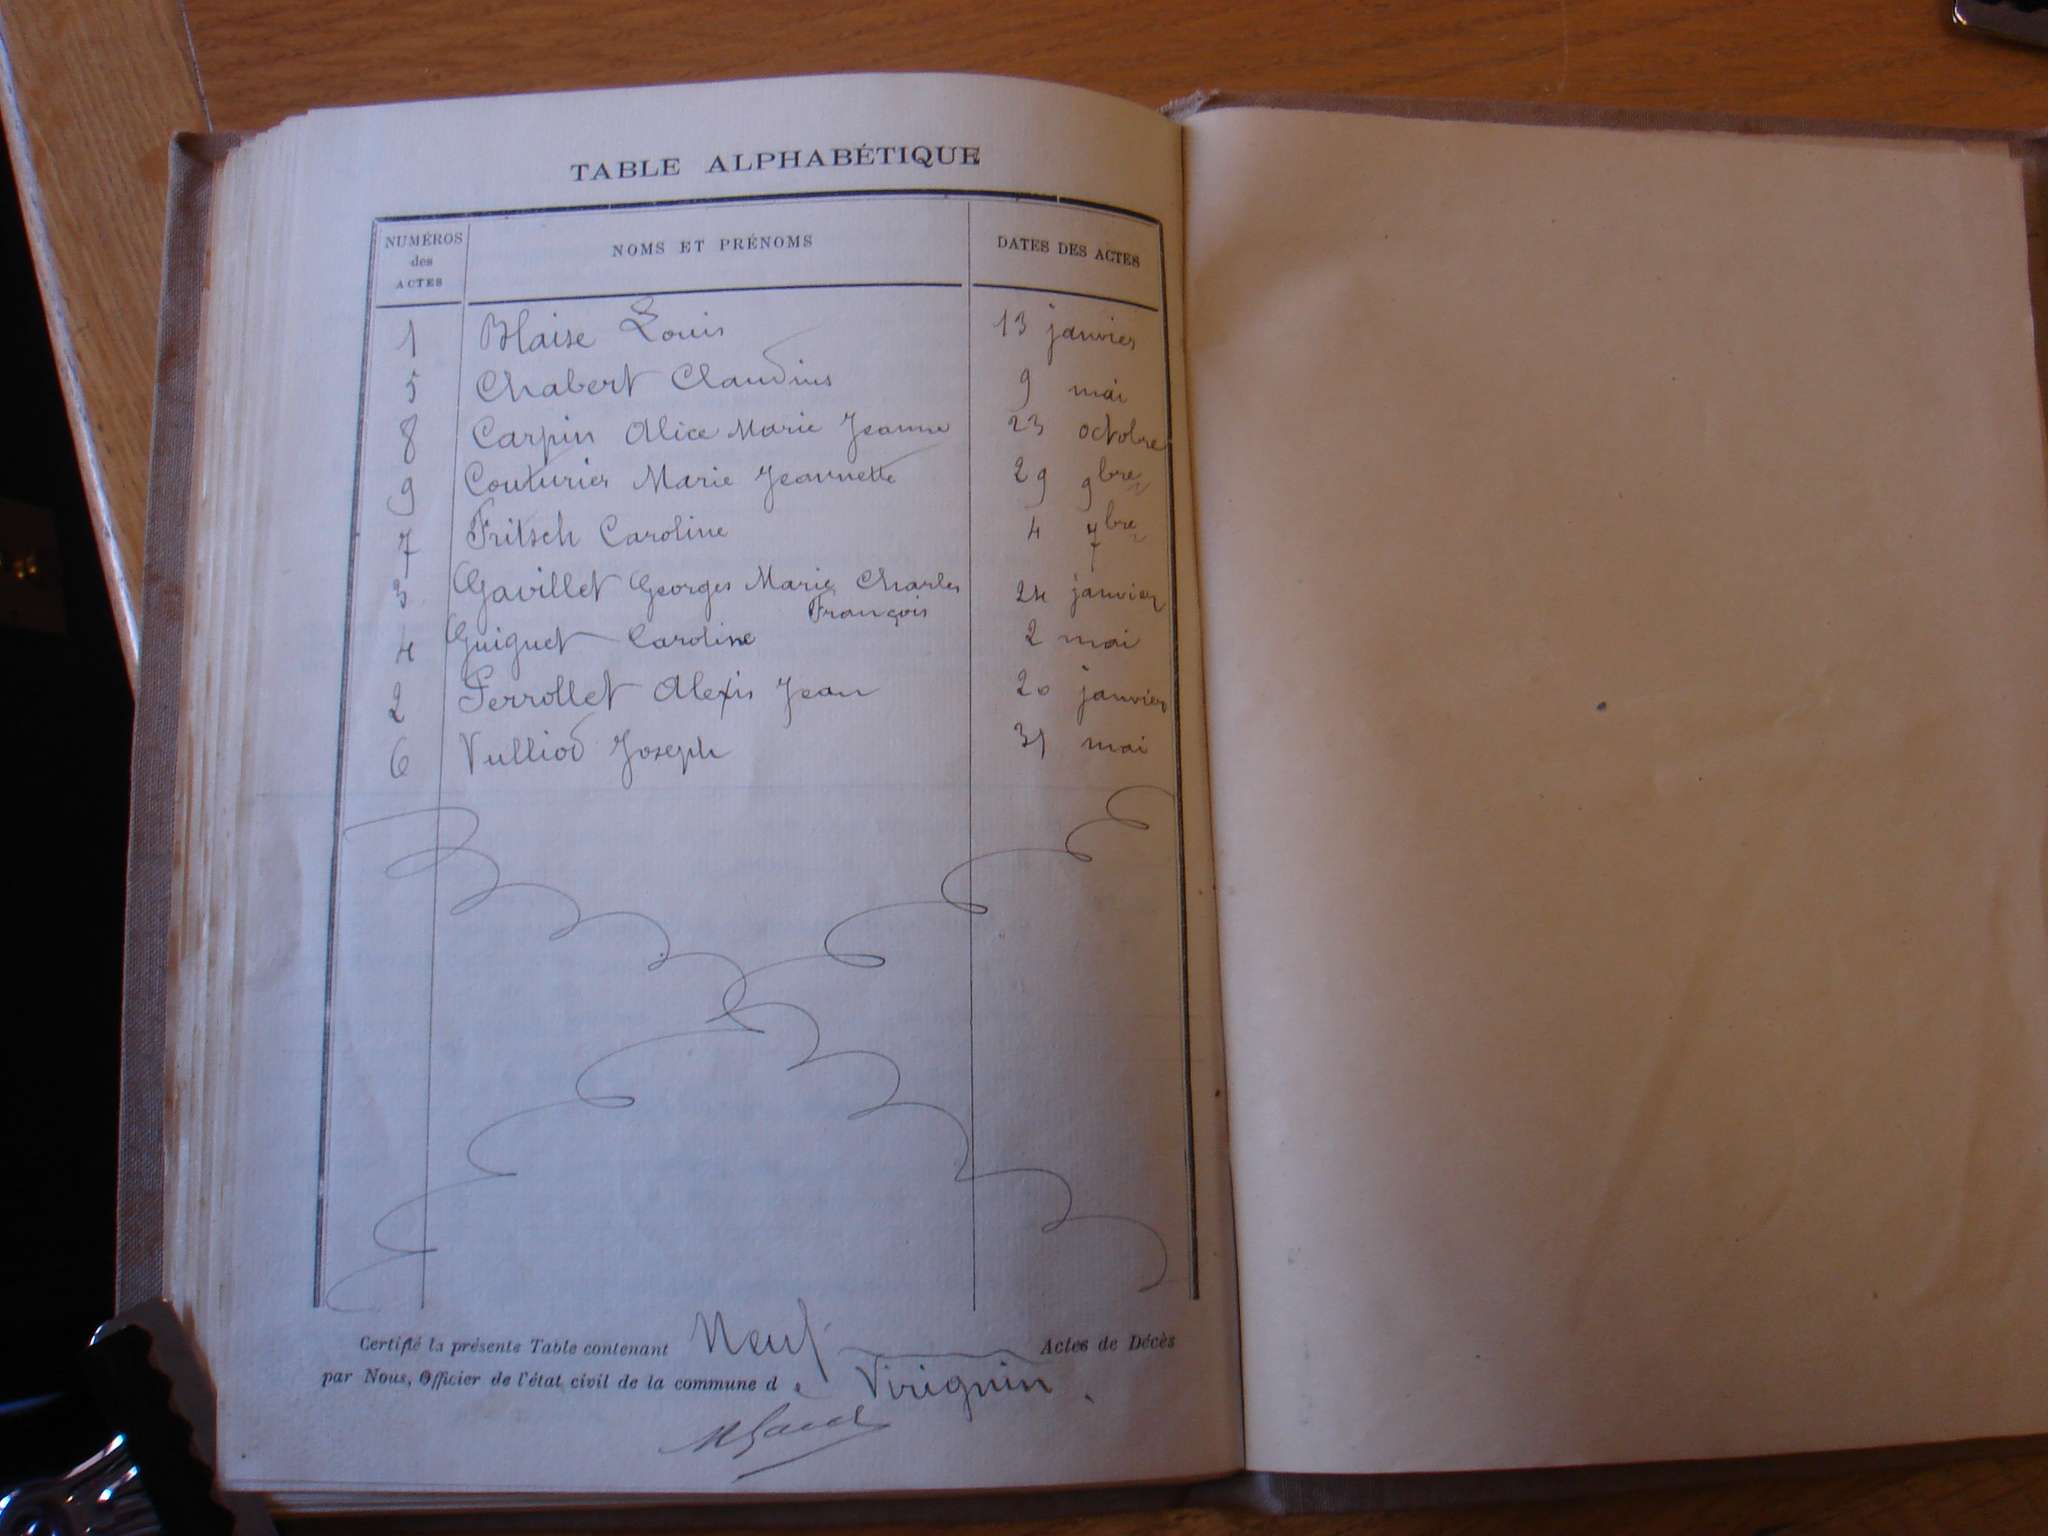 TABLE ALPHABÉTIQUE
NUMÉROS des ACTES NOMS ET PRÉNOMS DATES DES ACTES
1 Blaise Louis 13 janvier
5 Chabert Claudius 9 mai
8 Carpin Alice Marie Jeanne 23 octobre
9 Couturier Marie Jeannette 29 9bre
7 Fritsch Caroline 4 7bre
3 Gavillet Georges Marie Charles 24 janvier
François
4 Guiguet Caroline 2 mai
2 Perrollet Alexis Jean 20 janvier
6 Vulliod Joseph 31 mai
Certifié la présente Table contenant Neuf Actes de Décès
par Nous, Officier de l'état civil de la commune de Virignin.